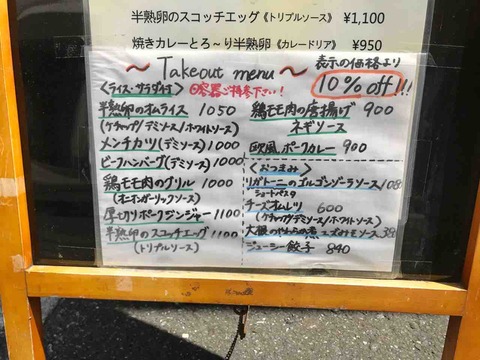 半熟卵のスコッチエッグ《トリプルソース》 ¥1,100
焼きカレーとろ～り半熟卵《カレードリア》 ¥950
～ Takeout menu ～
表示の価格より
10% off!!!
〈ライス・サラダ付〉
半熟卵のオムライス 1050
(ケチャップ/デミソース/ホワイトソース)
メンチカツ(デミソース) 1000
ビーフハンバーグ(デミソース) 1000
鶏モモ肉のグリル 1000
(オニオンガーリックソース)
厚切りポークジンジャー 1100
半熟卵のスコッチエッグ 1100
(トリプルソース)
鶏モモ肉の唐揚げ 900
ネギソース
欧風ポークカレー 900
〈おつまみ〉
リガトーニのゴルゴンゾーラソース 1080
ショートパスタ
チーズオムレツ 600
(ケチャップ/デミソース/ホワイトソース)
大根のやわらか煮
ジューシー餃子 840